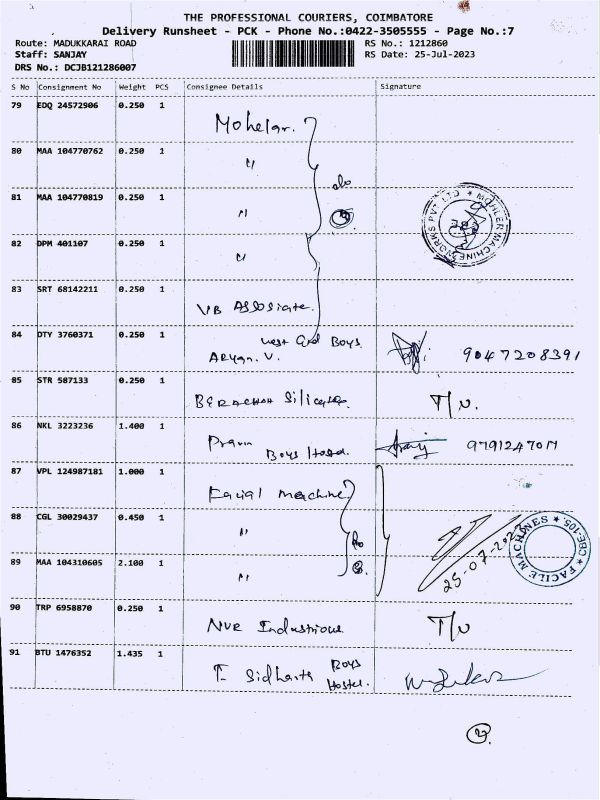 THE PROFESSIONAL COURIERS, COIMBATORE
Delivery Runsheet - PCK - Phone No.:0422-3505555 - Page No.:7
Route: MADUKKARAI ROAD RS No.: 1212860
Staff: SANJAY RS Date: 25-Jul-2023
DRS No.: DCJB121286007
S No Consignment No Weight PCS Consignee Details Signature
79 EDQ 24572906 0.250 1
Mohelar.
80 MAA 104770762 0.250 1
"
81 MAA 104770819 0.250 1
"
MOHLER MACHINE WORKS PVT LTD
82 DPM 401107 0.250 1
"
83 SRT 68142211 0.250 1
VB Assosiate.
84 DTY 3760371 0.250 1
West God Boys.
Aryan. V. 9047208391
85 STR 587133 0.250 1
BERACHAH Silicates. T/U.
86 NKL 3223236 1.400 1
Pravin
Boys Hostel.
87 VPL 124987181 1.000 1
Facial machine
88 CGL 30029437 0.450 1
"
FACILE MACHINES * CBE-105 *
25-07-2023
89 MAA 104310605 2.100 1
"
90 TRP 6958870 0.250 1
NVR Industrious T/U
91 BTU 1476352 1.435 1
T. Sidharth Boys
Hostel.
27